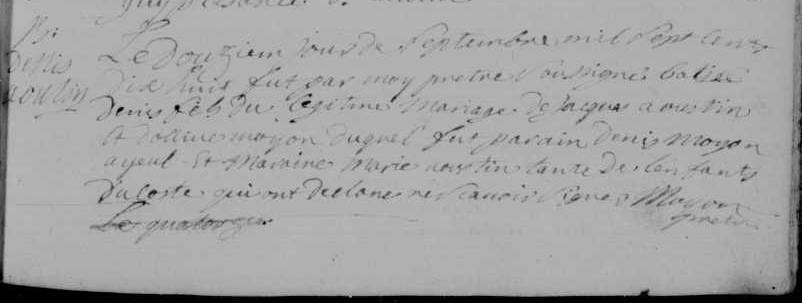 Le douziem jour de Septembre mil Sept cent
dix huit fut par moy pretre soussigné batise
denis fils du legitime mariage de Jacques aoustin
et dolliue moyon duquel fut parain denis moyon
ayeul et Maraine Marie aoustin tante de lenfant
du coste qui ont declare ne scauoir signer Moyon
pretre
Le quatorzie